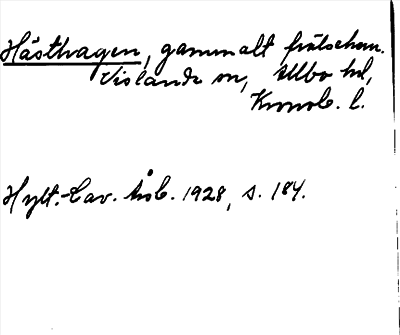 Hästhagen, gammalt frälsehem.
Vislanda sn, Allbo hd,
Kronob. l.
Hylt.-Cav. årsb. 1928, s. 184.